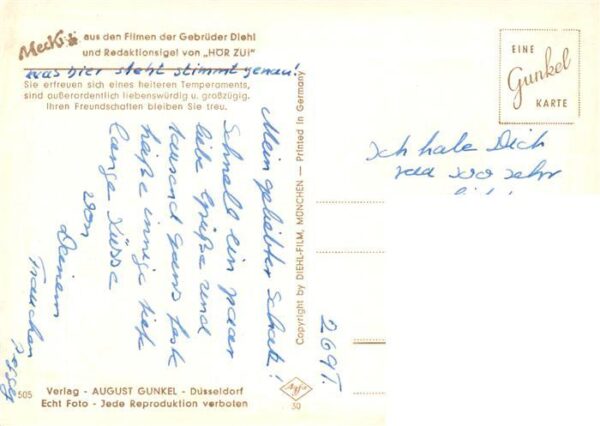 Mecki aus den Filmen der Gebrüder Diehl
und Redaktionsigel von „HÖR ZU!"
was hier steht stimmt genau!
Sie erfreuen sich eines heiteren Temperaments,
sind außerordentlich liebenswürdig u. großzügig.
Ihren Freundschaften bleiben Sie treu.
Mein geliebter Schatz!
Schnell ein paar
liebe Grüße und
tausend ganz feste
heiße innige tiefe
lange Küsse
von
Deinem
Frauchen
Copyright by DIEHL-FILM, MÜNCHEN — Printed in Germany
EINE
Gunkel
KARTE
Ich habe Dich
sehr
269T.
505
Verlag - AUGUST GUNKEL - Düsseldorf
Echt Foto - Jede Reproduktion verboten
Agfa
30